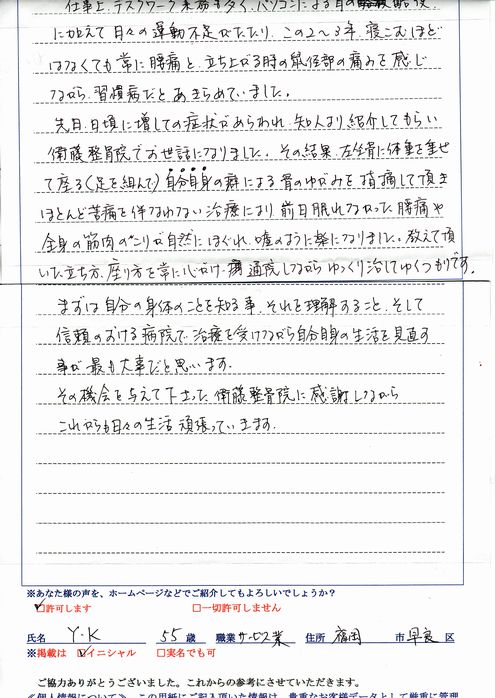 仕事上、デスクワーク業務も多く、パソコンによる首の
に加えて日々の運動不足がたたり、この2〜3年、寝こむほど
ではなくても常に腰痛と、立ち上がる時の鼠径部の痛みを感じ
ながら、習慣病だとあきらめていました。
先日、日頃に増しての症状があらわれ、知人より紹介してもらい
衛藤整骨院でお世話になりました。その結果、左坐骨に体重を乗せ
て座る(足を組んで)自分自身の癖による骨のゆがみを指摘して頂き
ほとんど苦痛を伴なわない治療により、前日眠れなかった腰痛や
全身の筋肉のこりが自然にほぐれ、嘘のように楽になりました。教えて頂
いた立ち方、座り方を常に心がけ、通院しながらゆっくり治してゆくつもりです。
まずは自分の身体のことを知る事、それを理解すること、そして
信頼のおける病院で、治療を受けながら自分自身の生活を見直す
事が最も大事だと思います。
その機会を与えて下さった、衛藤整骨院に感謝しながら
これからも日々の生活、頑張っていきます。
※あなた様の声を、ホームページなどでご紹介してもよろしいでしょうか?
☑許可します □一切許可しません
氏名 Y・K 55歳 職業 サービス業 住所 福岡 市 早良 区
※掲載は ☑イニシャル □実名でも可
ご協力ありがとうございました。これからの参考にさせていただきます。
≪個人情報について≫ この用紙にご記入頂いた情報は、貴重なお客様データとして厳重に管理